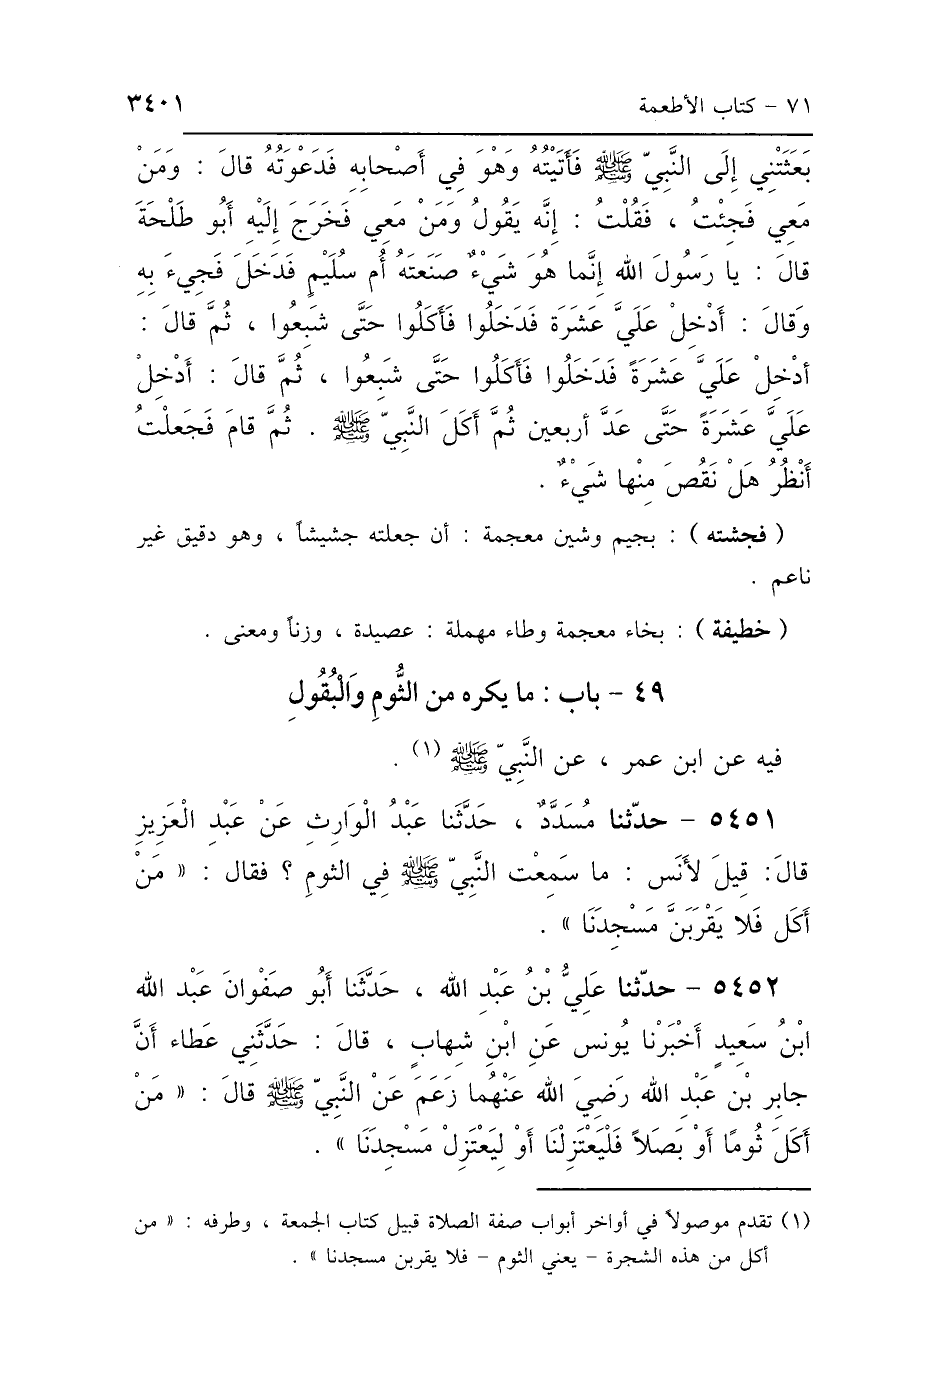 ٧١ - كتاب الأطعمة ٣٤٠١
بَعَثَتْنِي إلَى النَّبِيّ ﷺ فَأَتَيْتُهُ وَهْوَ فِي أَصْحابِهِ فَدَعَوْتُهُ قالَ : وَمَنْ
مَعِي فَجِئْتُ ، فَقُلْتُ : إنَّه يَقُولُ وَمَنْ مَعِي فَخَرَجَ إلَيْهِ أَبُو طَلْحَةَ
قالَ : يا رَسُولَ الله إنَّما هُوَ شَيْءٌ صَنَعَتَهُ أُم سُلَيْمٍ فَدَخَلَ فَجِيءَ بِهِ
وَقالَ : أَدْخِلْ عَلَيَّ عَشَرَة فَدَخَلُوا فَأَكَلُوا حَتَّى شَبِعُوا ، ثُمَّ قالَ :
أدْخِلْ عَلَيَّ عَشَرَةً فَدَخَلُوا فَأَكَلُوا حَتَّى شَبِعُوا ، ثُمَّ قالَ : أَدْخِلْ
عَلَيَّ عَشَرَةً حَتَّى عَدَّ أربعين ثُمَّ أَكَلَ النَّبِيّ ﷺ . ثُمَّ قامَ فَجَعلْتُ
أَنْظُرُ هَلْ نَقُصَ مِنْها شَيْءٌ .
( فجشته ) : بجيم وشين معجمة : أن جعلته جشيشاً ، وهو دقيق غير
ناعم .
( خطيفة ) : بخاء معجمة وطاء مهملة : عصيدة ، وزناً ومعنى .
٤٩ - باب : ما يكره من الثُّومِ وَالْبُقُولِ
فيه عن ابن عمر ، عن النَّبِيّ ﷺ (١) .
٥٤٥١ - حدّثنا مُسَدَّدٌ ، حَدَّثَنا عَبْدُ الْوَارِثِ عَنْ عَبْدِ الْعَزِيزِ
قالَ: قِيلَ لأنَس : ما سَمِعْت النَّبِيّ ﷺ فِي الثومِ ؟ فقال : « مَنْ
أكَل فَلا يَقْرَبَنَّ مَسْجِدَنَا » .
٥٤٥٢ - حدّثنا عَلِيُّ بْنُ عَبْدِ الله ، حَدَّثَنا أَبُو صَفْوانَ عَبْد الله
ابْنُ سَعِيدٍ أخْبَرْنا يُونس عَنِ ابْنِ شهابٍ ، قالَ : حَدَّثَنِي عَطاء أَنَّ
جابِر بْنِ عَبْدِ الله رَضِيَ الله عَنْهُما زَعَمَ عَنْ النَّبِيّ ﷺ قالَ : « مَنْ
أَكَلَ ثُومًا أوْ بَصَلاً فَلْيَعْتَزِلْنَا أَوْ لِيَعْتَزِلْ مَسْجِدَنَا » .
(١) تقدم موصولاً في أواخر أبواب صفة الصلاة قبيل كتاب الجمعة ، وطرفه : « من
أكل من هذه الشجرة - يعني الثوم - فلا يقربن مسجدنا » .